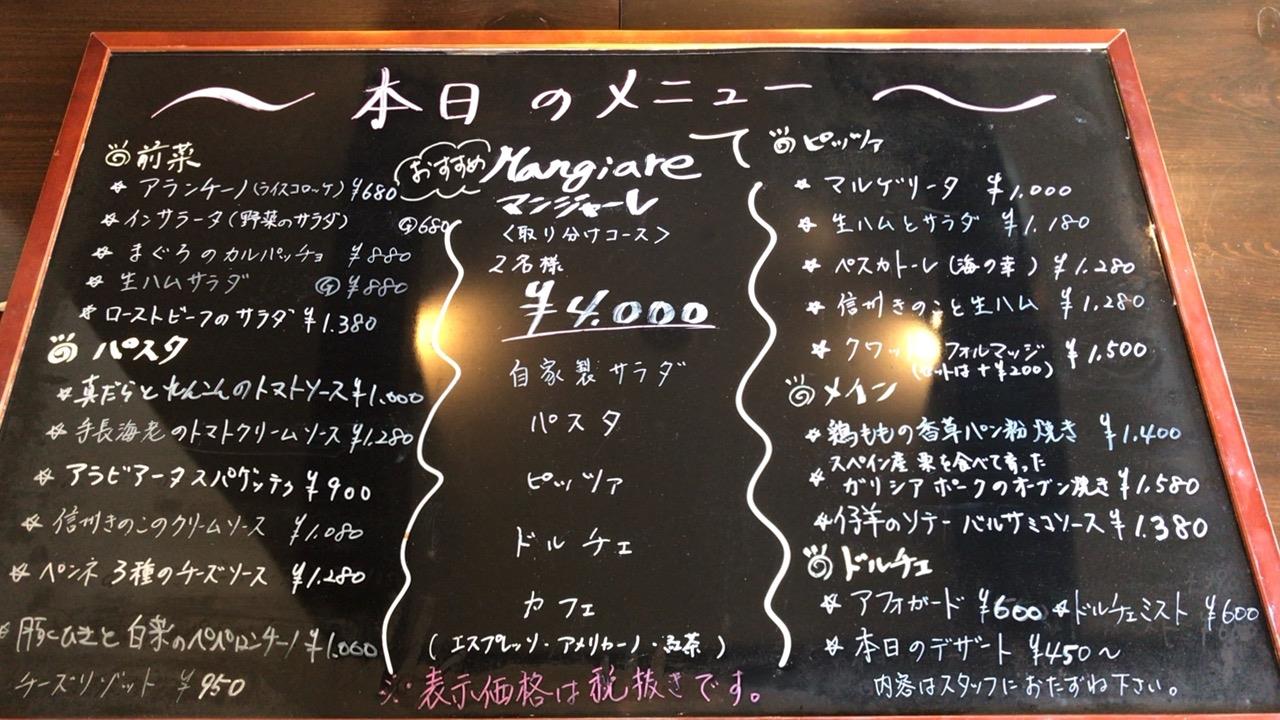 本日のメニュー
前菜
☆ アランチーノ(ライスコロッケ) ¥680
☆ インサラータ(野菜のサラダ) 680
☆ まぐろのカルパッチョ ¥880
☆ 生ハムサラダ ¥880
☆ ローストビーフのサラダ ¥1.380
パスタ
☆ 真だらとれんこんのトマトソース ¥1.000
☆ 手長海老のトマトクリームソース ¥1,280
☆ アラビアータスパゲッティ ¥900
☆ 信州きのこのクリームソース ¥1.080
☆ ペンネ 3種のチーズソース ¥1.280
☆ 豚ひきと白菜のペペロンチーノ ¥1.000
チーズリゾット ¥950
おすすめ
Mangiare
マンジャーレ
<取り分けコース>
2名様
¥4.000
自家製サラダ
パスタ
ピッツァ
ドルチェ
カフェ
(エスプレッソ・アメリカーノ・紅茶)
※表示価格は税抜きです。
ピッツァ
☆ マルゲリータ ¥1,000
☆ 生ハムとサラダ ¥1.180
☆ ペスカトーレ(海の幸) ¥1.280
☆ 信州きのこと生ハム ¥1,280
☆ クワッ フォルマッジ ¥1,500
(セットは+¥200)
メイン
☆ 鶏ももの香草パン粉焼き ¥1.400
スペイン産 栗を食べて育った
☆ ガリシアポークのオーブン焼き ¥1,580
☆ 仔羊のソテー バルサミコソース ¥1.380
ドルチェ
☆ アフォガード ¥600 ☆ドルチェミスト ¥600
☆ 本日のデザート ¥450〜
内容はスタッフにおたずね下さい。